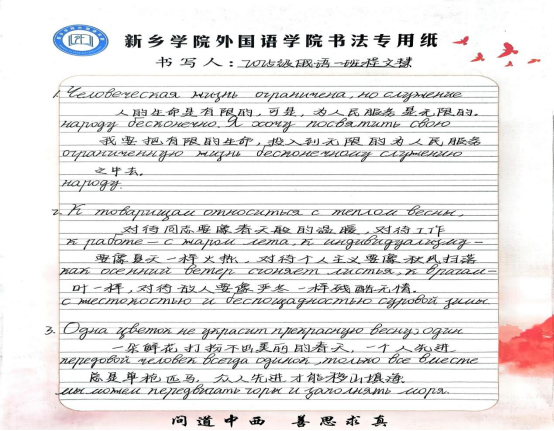 新乡学院外国语学院书法专用纸
书写人：2025级俄语一班程文慧
1. Человеческая жизнь ограничена, но служение
人的生命是有限的，可是，为人民服务是无限的。
народу бесконечно. Я хочу посвятить свою
我要把有限的生命，投入到无限的为人民服务
ограниченную жизнь бесконечному служению
之中去。
народу.
2. К товарищам относиться с теплом весны,
对待同志要像春天般的温暖，对待工作
к работе – с жаром лета, к индивидуализму –
要像夏天一样火热，对待个人主义要像秋风扫落
как осенний ветер сгоняет листья, к врагам –
叶一样，对待敌人要像严冬一样残酷无情。
с жестокостью и беспощадностью суровой зимы.
3. Одна цветок не украсит прекрасную весну, один
一朵鲜花打扮不出美丽的春天，一个人先进
передовой человек всегда одинок, только все вместе
总是单枪匹马，众人先进才能移山填海
мы можем передвигать горы и заполнять моря.
问道中西 善思求真